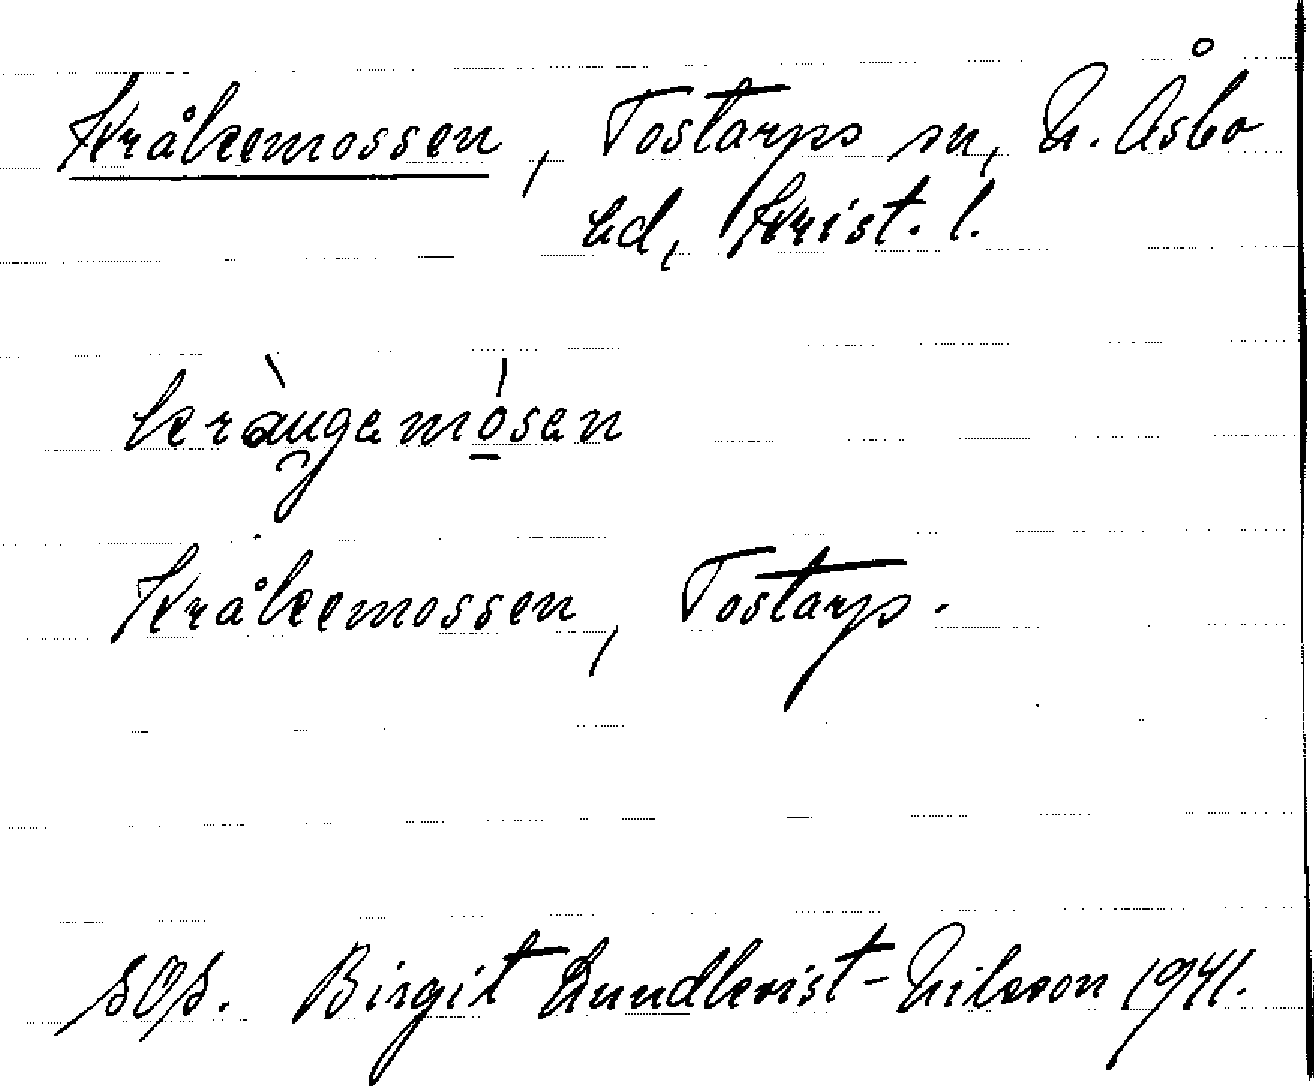 Kråkemossen, Tostarps sn, N. Åsbo
hd, Krist. l.
Kråkemossen, Tostarp.
SOS. Birgit Lundkvist-Nilsson 1941.